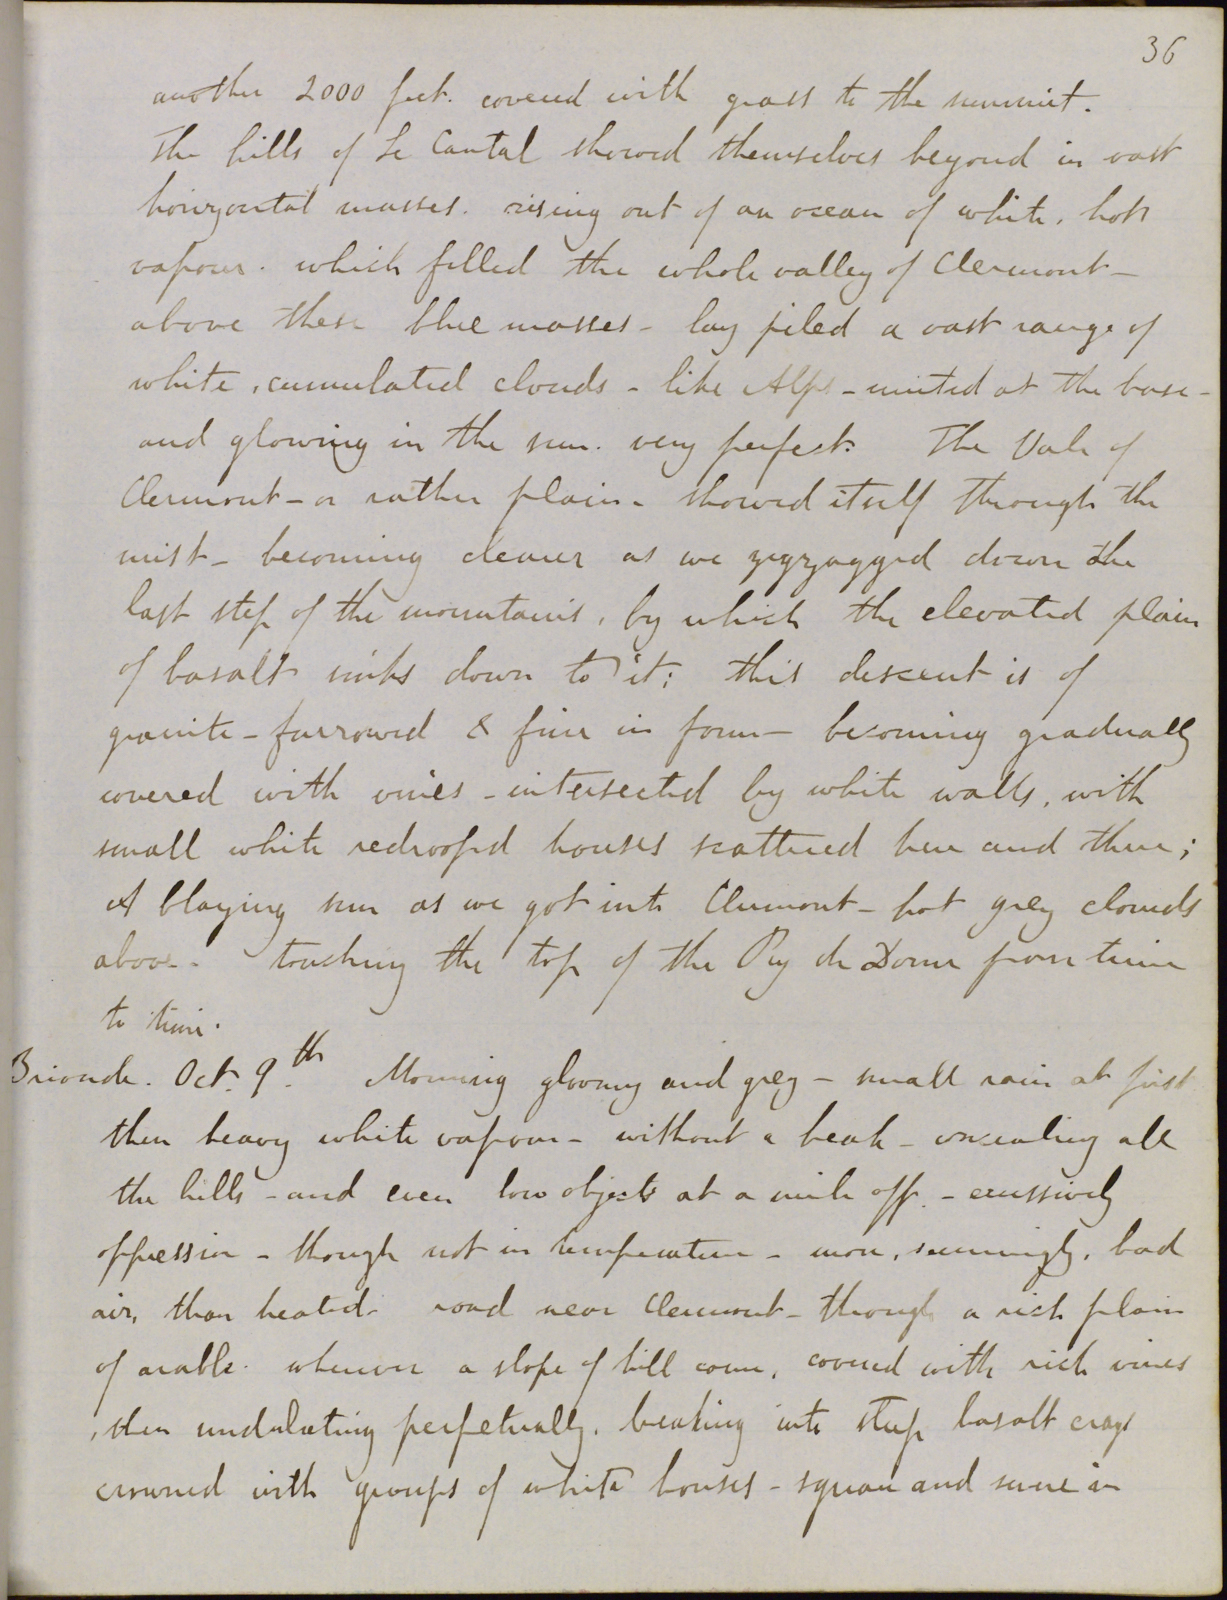 36
another 2000 feet. covered with grass to the summit.
The hills of Le Cantal showed themselves beyond in vast
horizontal masses. rising out of an ocean of white, hot
vapour. which filled the whole valley of Clermont -
above these blue masses - lay piled a vast range of
white, cumulated clouds - like Alps - united at the base -
and glowing in the sun. very perfect. The Vale of
Clermont - or rather plain - showed itself through the
mist - becoming clearer as we zigzagged down the
last step of the mountains, by which the elevated plain
of basalt sinks down to it; this descent is of
granite - furrowed & fine in form - becoming gradually
covered with vines - intersected by white walls, with
small white redroofed houses scattered here and there;
A blazing sun as we got into Clermont - hot grey clouds
above. touching the top of the Puy de Dome from time
to time.
Brioude. Oct. 9.th Morning gloomy and grey - small rain at first
then heavy white vapour - without a break - concealing all
the hills - and even low objects at a mile off. - excessively
oppressive - though not in temperature - more, seemingly, bad
air, than heated. road near Clermont - through a rich plain
of arable. wherever a slope of hill came, covered with rich vines
, then undulating perpetually. breaking into steep basalt crags
crowned with groups of white houses - square and severe in